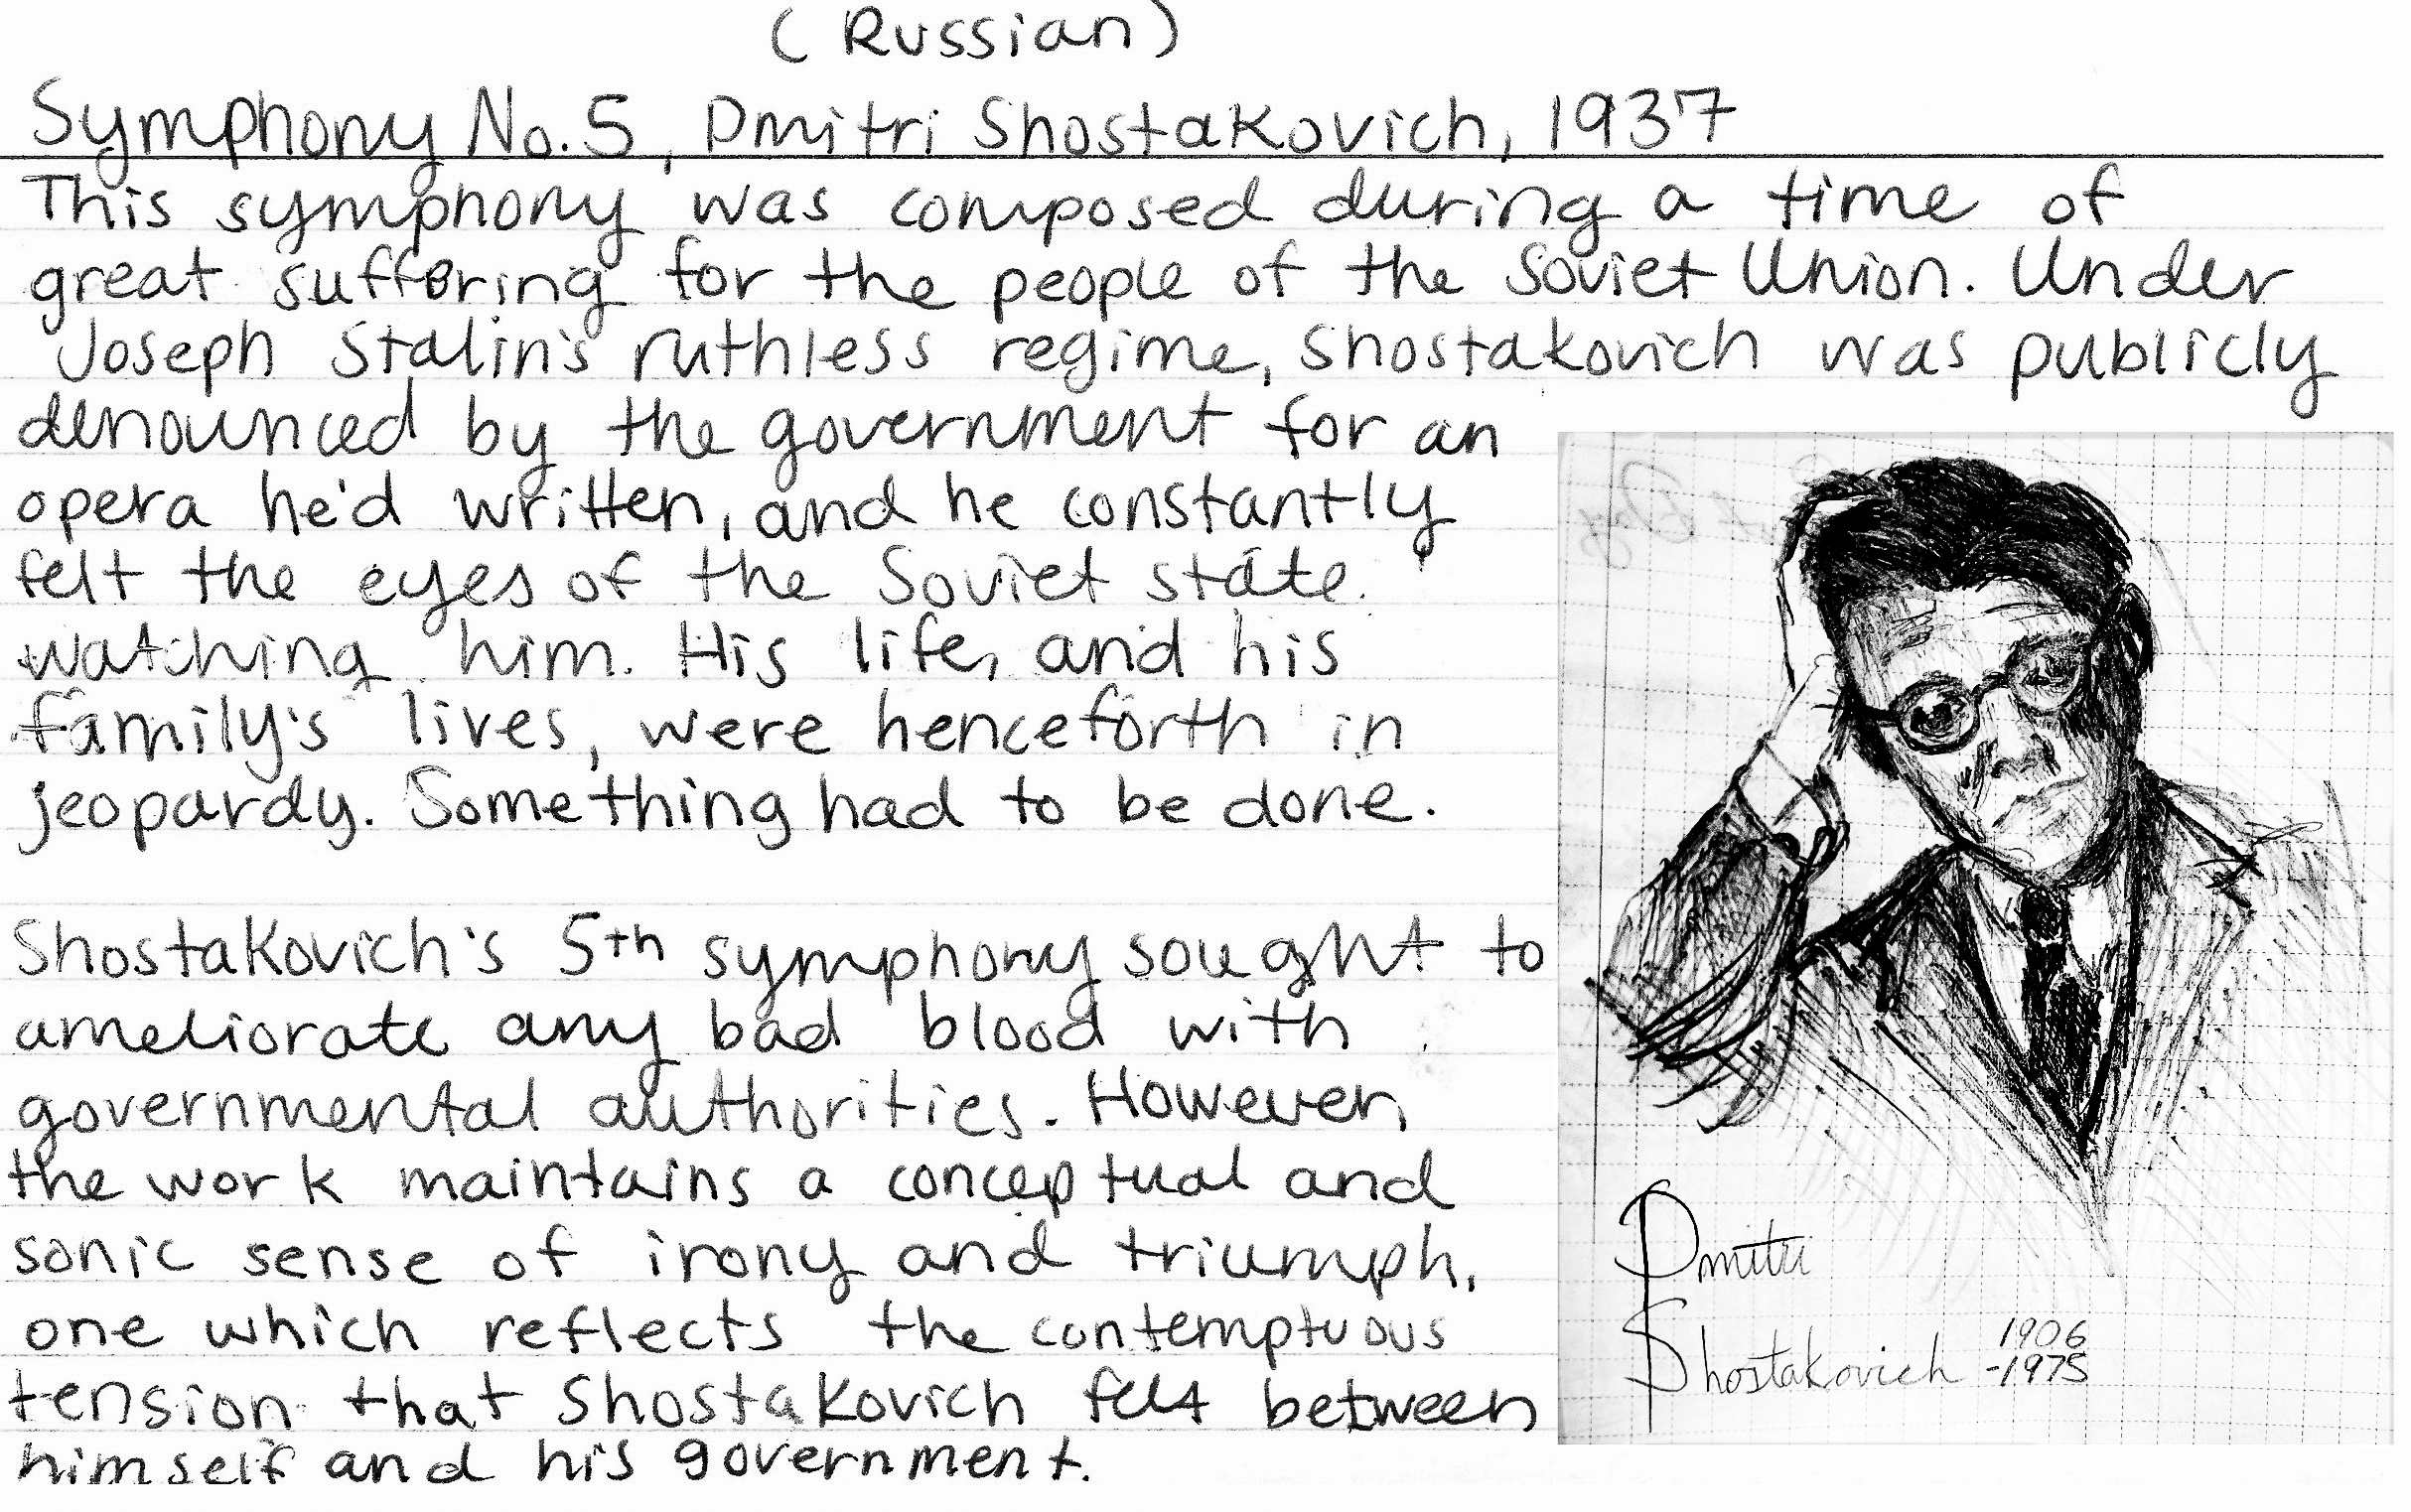 (Russian)
Symphony No. 5, Dmitri Shostakovich, 1937
This symphony was composed during a time of
great suffering for the people of the Soviet Union. Under
Joseph Stalin's ruthless regime, Shostakovich was publicly
denounced by the government for an
opera he'd written, and he constantly
felt the eyes of the Soviet state
watching him. His life, and his
family's lives, were henceforth in
jeopardy. Something had to be done.
Shostakovich's 5th symphony sought to
ameliorate any bad blood with
governmental authorities. However,
the work maintains a conceptual and
sonic sense of irony and triumph,
one which reflects the contemptuous
tension that Shostakovich felt between
himself and his government.
Dmitri
Shostakovich
1906
-1975